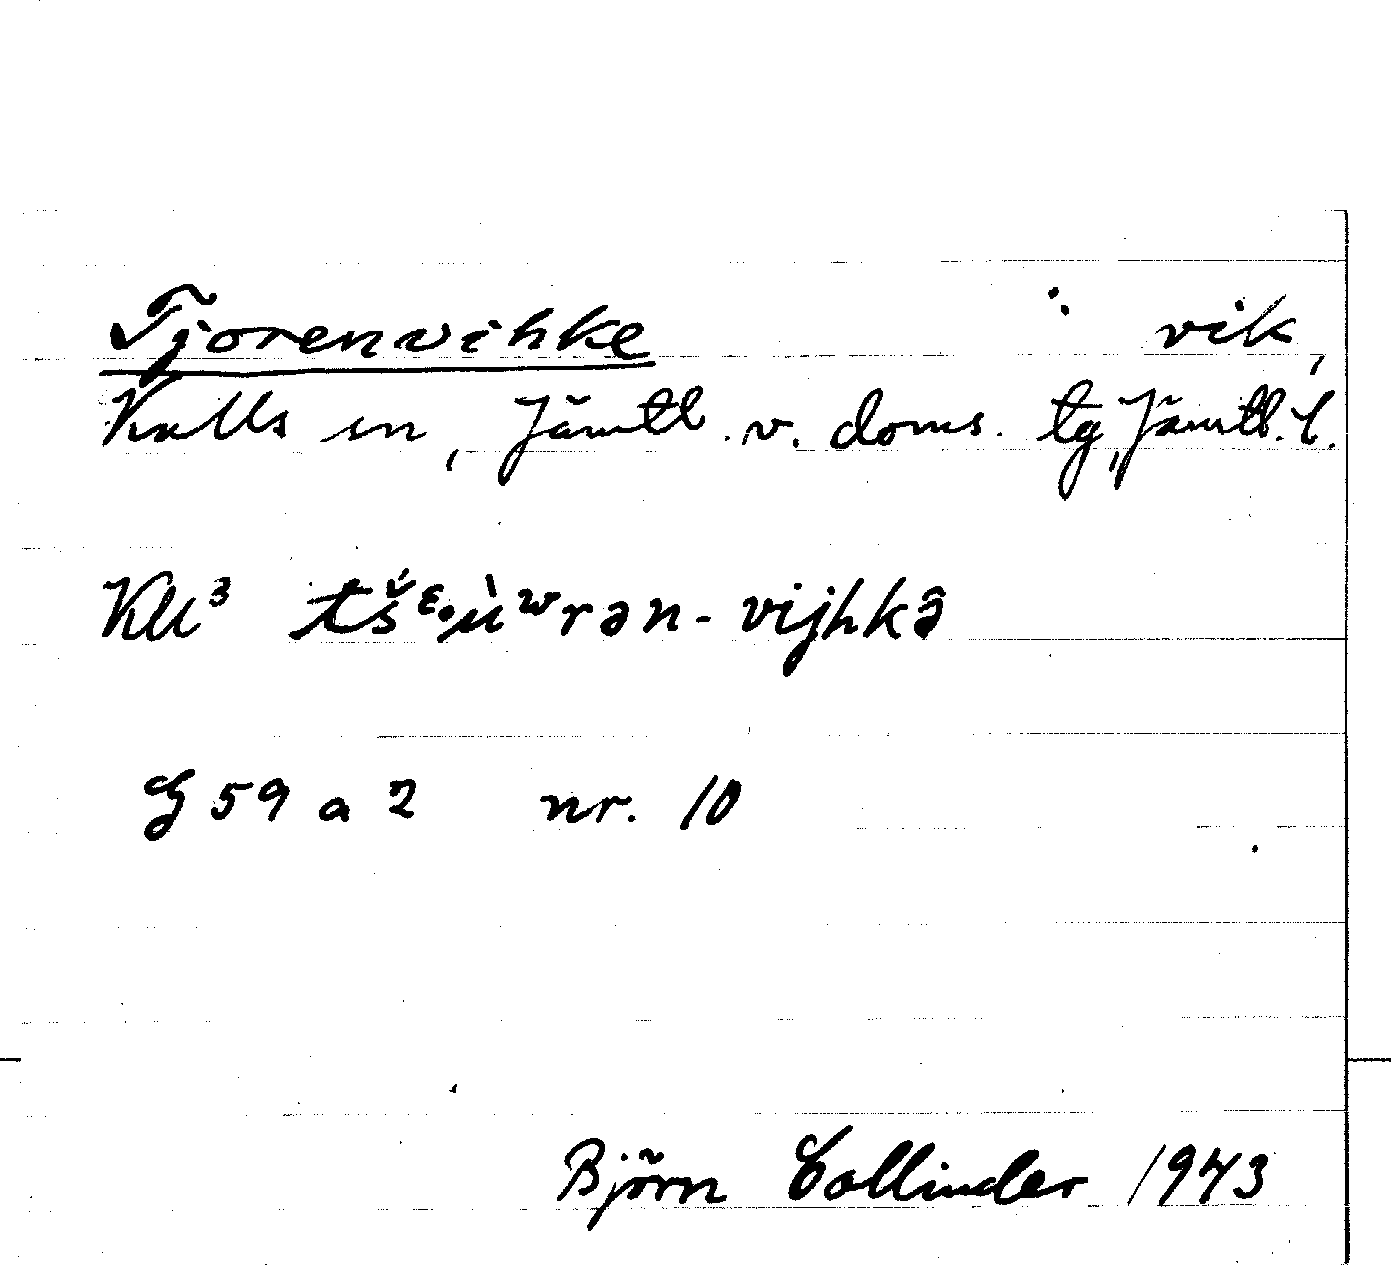 Tjorenvihke vik,
Kalls sn, Jämtl. v. doms. tg, Jämtl. l.
Kll³ tš́ᵋ·ù̀ʷrən-vijhkə̂
G 59 a 2 nr. 10
Björn Collinder 1943